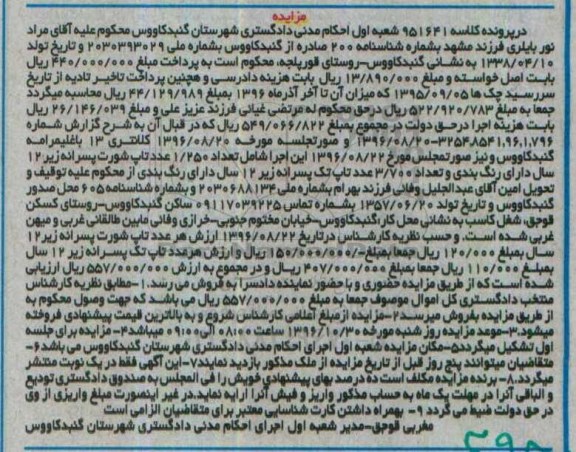 مزایده
درپرونده کلاسه ۹۵۱۶۴۱ شعبه اول احکام مدنی دادگستری شهرستان گنبدکاووس محکوم علیه آقای مراد
نور بایلری فرزند مشهد بشماره شناسنامه ۲۰۰ صادره از گنبدکاووس بشماره ملی ۲۰۳۰۳۹۳۰۲۹ و تاریخ تولد
۱۳۳۸/۰۴/۱۰ به نشانی گنبدکاووس-روستای قورپلجه، محکوم است به پرداخت مبلغ ۴۴۰/۰۰۰/۰۰۰ ریال
بابت اصل خواسته و مبلغ ۱۳/۸۹۰/۰۰۰ ریال بابت هزینه دادرسی و همچنین پرداخت تاخیر تادیه از تاریخ
سررسید چک ها ۱۳۹۵/۰۹/۰۵ که میزان آن تا آخر آذرماه ۱۳۹۶ بمبلغ ۴۴/۱۲۹/۹۸۹ ریال محاسبه میگردد
جمعا به مبلغ ۵۲۲/۹۲۰/۷۸۳ ریال درحق محکوم له مرتضی غیاثی فرزند عزیز علی و مبلغ ۲۶/۱۴۶/۰۳۹ ریال
بابت هزینه اجرا درحق دولت در مجموع بمبلغ ۵۴۹/۰۶۶/۸۲۲ ریال که در قبال آن به شرح گزارش شماره
۳۲۵۴،۸۵۴۱،۹۶،۱،۷۹۶-۱۳۹۶/۰۸/۲۰ و صورتجلسه مورخه ۱۳۹۶/۰۸/۲۰ کلانتری ۱۳ باغلیمرامه
گنبدکاووس و نیز صورتمجلس مورخ ۱۳۹۶/۰۸/۲۲ این اجرا شامل تعداد ۱/۲۵۰ عدد تاپ شورت پسرانه زیر ۱۲
سال دارای رنگ بندی و تعداد ۳/۷۰۰ عدد تاپ تک پسرانه زیر ۱۲ سال دارای رنگ بندی از محکوم علیه توقیف و
تحویل امین آقای عبدالجلیل وفائی فرزند بهرام بشماره ملی ۲۰۳۰۶۸۸۱۳۴ و بشماره شناسنامه ۶۰۵ محل صدور
گنبدکاووس و تاریخ تولد ۱۳۵۷/۰۶/۲۰ بشماره تماس ۰۹۱۱۷۰۳۹۲۲۵ ساکن گنبدکاووس-روستای کسکن
قوجق، شغل کاسب به نشانی محل کار، گنبدکاووس-خیابان مختوم جنوبی-خرازی وفائی مابین طالقانی غربی و میهن
غربی شده است. و حسب نظریه کارشناس درتاریخ ۱۳۹۶/۰۸/۲۲ ارزش هر عدد تاپ شورت پسرانه زیر ۱۲
سال بمبلغ ۱۲۰/۰۰۰ ریال جمعا بمبلغ-/۱۵۰/۰۰۰/۰۰۰ ریال و ارزش هرعدد تاپ تک پسرانه زیر ۱۲ سال
بمبلغ ۱۱۰/۰۰۰ ریال جمعا بمبلغ ۴۰۷/۰۰۰/۰۰۰ ریال و در مجموع به ارزش ۵۵۷/۰۰۰/۰۰۰ ریال ارزیابی
شده است که از طریق مزایده حضوری و با حضور نماینده دادسرا به فروش می رسد.۱-مطابق نظریه کارشناس
منتخب دادگستری کل اموال موصوف جمعا به مبلغ ۵۵۷/۰۰۰/۰۰۰ ریال می باشد که جهت وصول محکوم به
از طریق مزایده بفروش میرسد۲-مزایده از مبلغ اعلامی کارشناس شروع و به بالاترین قیمت پیشنهادی فروخته
میشود.۳-موعد مزایده روز شنبه مورخه ۱۳۹۶/۱۰/۳۰ ساعت ۰۸:۰۰ الی ۰۹:۰۰ میباشد۴-مزایده برای جلسه
اول تشکیل میگردد۵-مکان مزایده شعبه اول اجرای احکام مدنی دادگستری شهرستان گنبدکاووس می باشد۶-
متقاضیان میتوانند پنج روز قبل از تاریخ مزایده از ملک مذکور بازدید نمایند۷-این آگهی فقط در یک نوبت منتشر
میگردد.۸- برنده مزایده مکلف است ده درصد بهای پیشنهادی خویش را فی المجلس به صندوق دادگستری تودیع
و الباقی آنرا در مهلت یک ماه به حساب مذکور واریز و فیش آنرا ارایه نماید.در غیر اینصورت مبلغ واریزی از وی
در حق دولت ضبط می گردد ۹- بهمراه داشتن کارت شناسایی معتبر برای متقاضیان الزامی است
مغربی قوجق-مدیر شعبه اول اجرای احکام مدنی دادگستری شهرستان گنبدکاووس